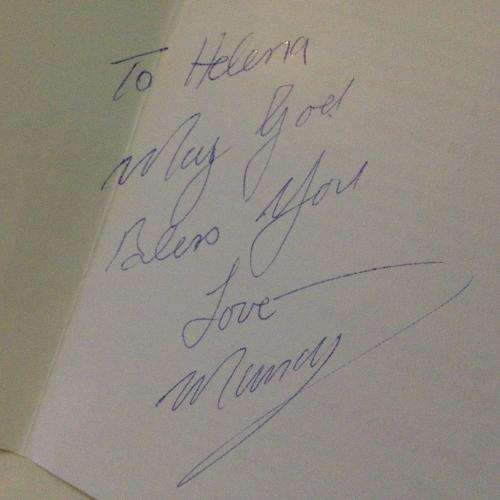 To Helena
May God
Bless You
Love